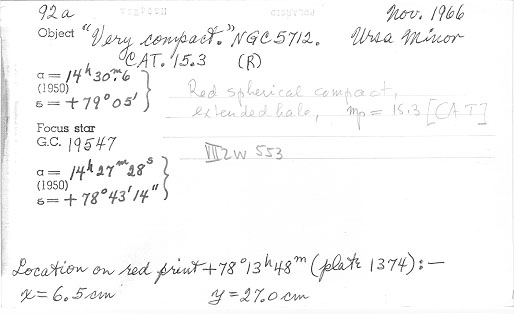 92a Nov. 1966
Object "Very compact." NGC 5712. Ursa Minor
CAT. 15.3 (R)
α = 14h 30m.6
(1950)
δ = +79° 05'
Red spherical compact,
extended halo, mp = 15.3 [CAT]
Focus star
G.C. 19547
VII Zw 553
α = 14h 27m 28s
(1950)
δ = +78° 43' 14"
Location on red print +78° 13h 48m (plate 1374):—
x = 6.5 cm y = 27.0 cm